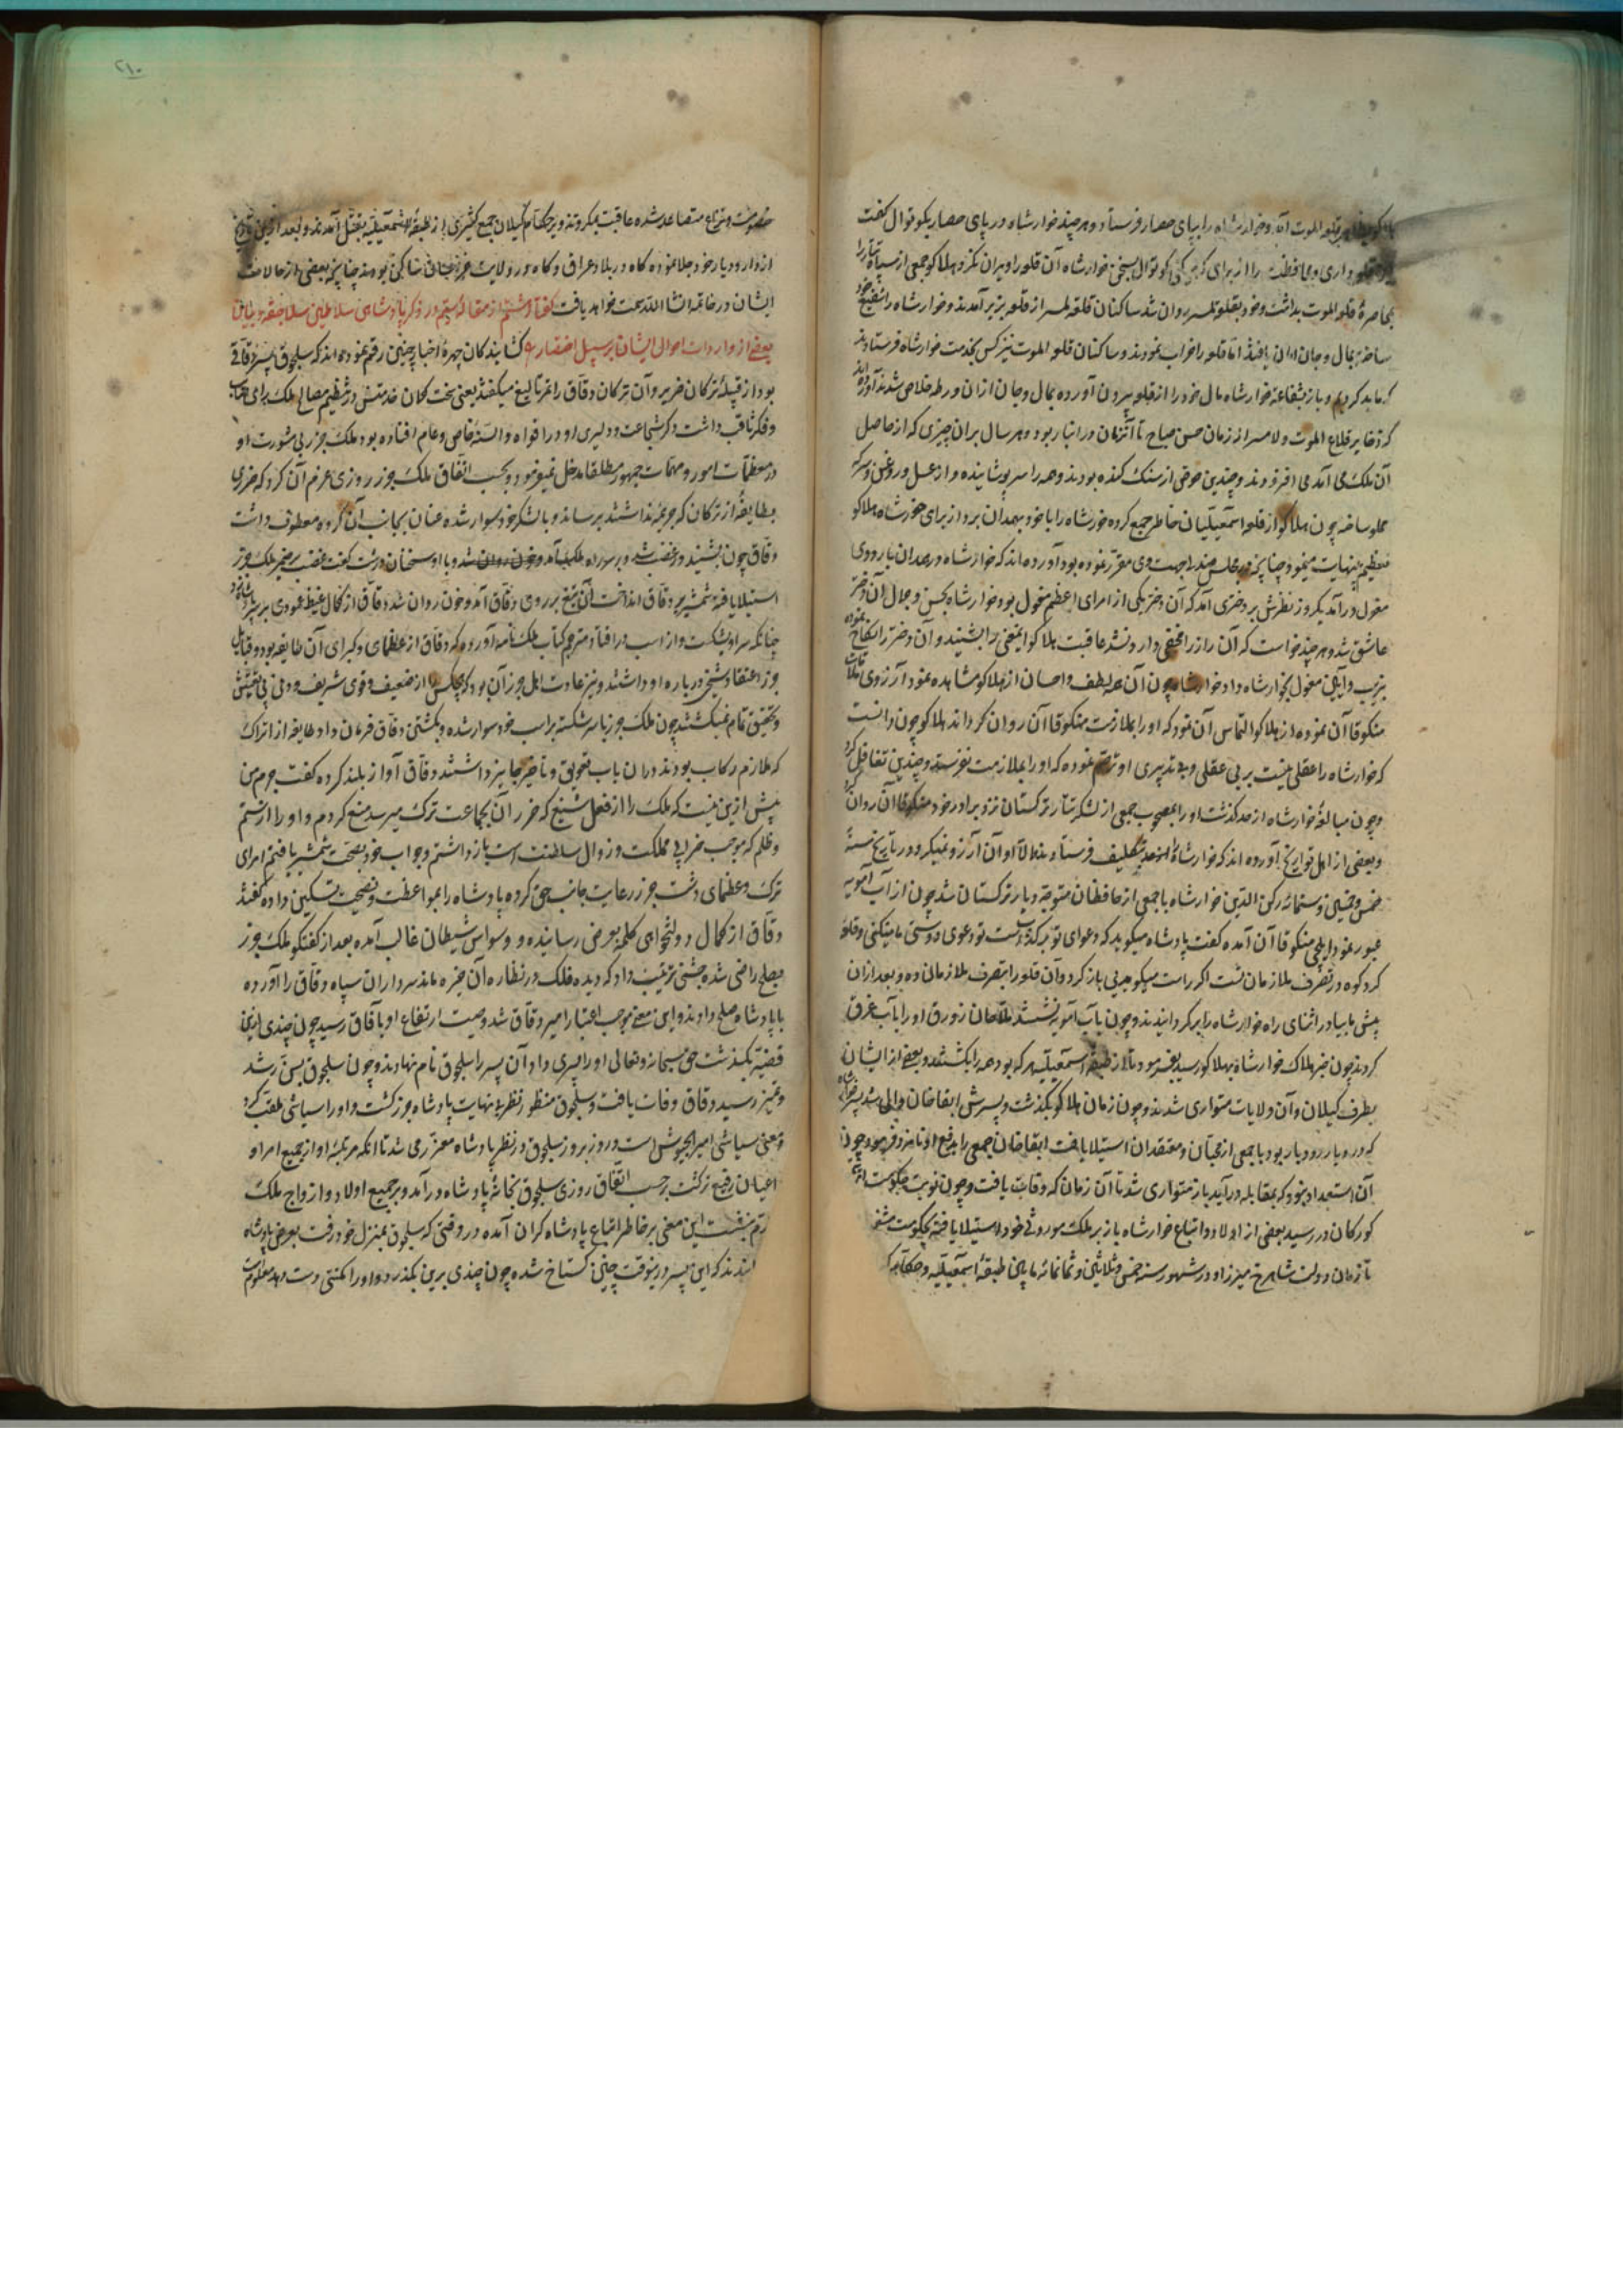 قلعه الموت آمد و خوارشاه را بپای حصار فرستاد و هر چند خوارشاه در پای حصار بکوتوال گفت
قلعه داری و محافظت را از برای کوتوال بسخن خوارشاه آن قلعه را ویران نکرد و هلاکو جمعی از سپاه تتار را
بمحاصرۀ قلعه الموت بداشت و خود بقلعۀ لمسر روان شد ساکنان قلعۀ لمسر از قلعه بزیر آمدند و خوارشاه را شفیع خود
ساخته بمال و جان امان یافتند اما قلعه را خراب نمودند و ساکنان قلعه الموت نیز کس بخدمت خوارشاه فرستادند
که ما بد کردیم و باز بشفاعت خوارشاه مال خود را از قلعه بیرون آورده بمال و جان از ان ورطه خلاص شدند آورده‌اند
که ذخایر قلاع الموت و لامسر از زمان حسن صباح تا آنزمان در انبار بود و هر سال بر ان چیزی که از حاصل
آن ملک می آمد می افزودند و چندین حوض از سنک کنده بودند و همه را سرپوشانیده و از عسل و روغن و سرکه
مملو ساخته چون هلاکو از قلعه اسمعیلیان خاطر جمع کرده خورشاه را با خود بهمدان برد از برای خورشاه هلاکو
تعظیم بینهایت مینمود چنانچه در مجلس صندلی جهت وی مقرر نموده بود آورده اند که خوارشاه در همدان باردوی
مغول درآمد یکروز نظرش بر دختری آمد که آن دختر یکی از امرای اعظم مغول بود خوارشاه بحسن و جمال آن دختر
عاشق شد و هر چند خواست که آن راز را مخفی دارد نشد عاقبت هلاکو اینمعنی را بشنید و آن دختر را نکاح نموده
بزیب و آیین مغول بخوارشاه داد خوارشاه چون آن همه لطف و احسان از هلاکو مشاهده نمود آرزوی ملاقات
منکوقاآن نموده از هلاکو التماس آن نمود که او را بملازمت منکوقاآن روان گرداند هلاکو چون دانست
که خوارشاه را عقلی نیست بر بی عقلی و بی تدبیری او ترحم نموده که او را بملازمت نفرستد و چندین تغافل کرد
و چون مبالغۀ خوارشاه از حد گذشت او را بمصحوب جمعی از لشکر تتار ترکستان نزد برادر خود منکوقاآن روان کرد
و بعضی از اهل تواریخ آورده اند که خوارشاه را تکلیف فرستاد و الا او آن آرزو نمیکرد و در تاریخ سنۀ
خمس و خمسین و ستمائه رکن الدین خوارشاه با جمعی از محافظان متوجه دیار ترکستان شد چون از آب آمویه
عبور نمود ایلچی منکوقاآن آمده گفت پادشاه میگوید که دعوای تو تو دعوی دوستی ما میکنی و قلعه
کردکوه در تصرف ملازمان تست اگر راست میگویی باز گرد و آن قلعه را بتصرف ملازمان ده و بعد از ان
پیش ما بیا در اثنای راه خوارشاه را برگردانیدند و چون بآب آمویه نشستند ملاحان زورق او را بآب غرق
کردند چون خبر هلاک خوارشاه بهلاکو رسید بفرمود تا از طبقۀ اسمعیلیه هر که بود همه را بکشتند و بعضی از ایشان
بطرف گیلان و آن ولایات متواری شدند و چون زمان هلاکو بگذشت و پسرش ابقاخان والی شد پسر خوارشاه
که در دیار رودبار بود با جمعی از محبان و معتقدان استیلا یافت ابقاخان جمعی را بدفع او نامزد فرمود چون
آن استعداد نبود که بمقابله درآید باز متواری شد تا آن زمان که وفات یافت و چون نوبت حکومت
کورکان در رسید بعضی از اولاد و اتباع خوارشاه باز بر ملک موروثی خود استیلا یافته بحکومت
تا زمان دولت شاهرخ میرزا و در شهور سنه خمس و ثلاثین و ثمانمائه مابین طبقۀ اسمعیلیه و حکام
۲۱۰
خصومت و نزاع متصاعد شده عاقبت حکام گیلان جمع کثیری از طبقۀ اسمعیلیه بقتل آمدند و بعد ازین
از دار و دیار خود جلا نموده گاه در بلاد عراق و گاه در ولایت ساکن بودند چنانچه بعضی از حالات
ایشان در خاتمه انشا الله سمت خواهد یافت گفتار هشتم از مقاله سیم در ذکر پادشاهی سلاطین سلاجقه و بیان
بعضی از واردات احوال ایشان بر سبیل اختصار گشایندگان چهرۀ اخبار چنین رقم نموده اند که سلجوق پسر دقاق
بود از قبیلۀ ترکان خزر و آن ترکان دقاق را تمر تالیغ میگفتند یعنی سخت کمان خدمتش در تنظیم مصالح ملک رای صائب
و فکر ثاقب داشت ذکر شجاعت و دلیری او در افواه و السنۀ خاص و عام افتاده بود ملک خزر بی مشورت او
در معظمات امور و مهمات جمهور مطلقا مدخل نمی نمود و بحسب اتفاق ملک خزر روزی عزم آن کرد که ضرری
بطایفۀ از ترکان که جرمی نداشتند برساند و با لشکر خود سوار شده عنان بجانب آن گروه معطوف داشت
دقاق چون بشنید در غضب شد و بر سر راه ملک آمد و با او سخنان درشت گفت غضب بر ضمیر ملک خزر
استیلا یافته شمشیر بر دقاق انداخت آن تیغ بر روی دقاق آمد و خون روان شد دقاق از کمال غیظ عمودی بر سر پادشاه زد
چنانکه سر او بشکست و از اسب در افتاد و مترجم کتاب ملک نامه آورده که دقاق از عظمای و کبرای آن طایفه بود و قبایل
خزر اعتقاد شیخی در باره او داشتند و نیز عادت اهل خزر آن بود که هیچکس را از ضعیف و قوی شریف و دنی بی تفتیش
و تحقیق تمام نمیکشتند چون ملک خزر با سر شکسته بر اسب خود سوار شده و بکشتن دقاق فرمان داد طایفه از اتراک
که ملازم رکاب بودند در ان باب تعویق و تأخیر جایز داشتند دقاق آواز بلند کرده گفت جرم من
بیش ازین نیست که ملک را از فعل شنیع که ضرر آن بجماعت ترک میرسد منع کردم و او را از ستم
و ظلم که موجب خرابی مملکت و زوال سلطنت است باز داشتم و جواب خود بضرب شمشیر یافتم امرای
ترک و عظمای دشت خزر رعایت جانب حق کرده پادشاه را بمواعظت و نصیحت تسکین داده گفتند
دقاق از کمال دولتخواهی کلمۀ بعرض رسانیده و وسواس شیطان غالب آمده بعد از گفتگو ملک خزر
بصلح راضی شده جشنی ترتیب داد که دیده فلک در نظاره آن خیره ماند سرداران سپاه دقاق را آورده
با پادشاه صلح دادند و این معنی موجب اعتبار امیر دقاق شد و صیت ارتفاع او بآفاق رسید چون چندی ازین
قضیه بگذشت حق سبحانه و تعالی او را پسری داد و آن پسر را سلجوق نام نهادند و چون سلجوق بسن رشد
و تمیز رسید دقاق وفات یافت و سلجوق منظور نظر بی نهایت پادشاه خزر گشت و او را سباشی ملقب کرد
و معنی سباشی امیر الجیوش است و روز بروز سلجوق در نظر پادشاه معزز می شد تا آنکه مرتبۀ او از جمیع امرا و
اعیان رفیع تر گشت بر حسب اتفاق روزی سلجوق بخانۀ پادشاه درآمد و بر جمیع اولاد و ازواج ملک
بنشست این معنی بر خاطر اتباع پادشاه گران آمده در وقتی که سلجوق بمنزل خود رفت بعرض پادشاه
که این پسر درینوقت چنین گستاخ شده چون چندی برین بگذرد و او را مکنتی دست دهد معلوم است